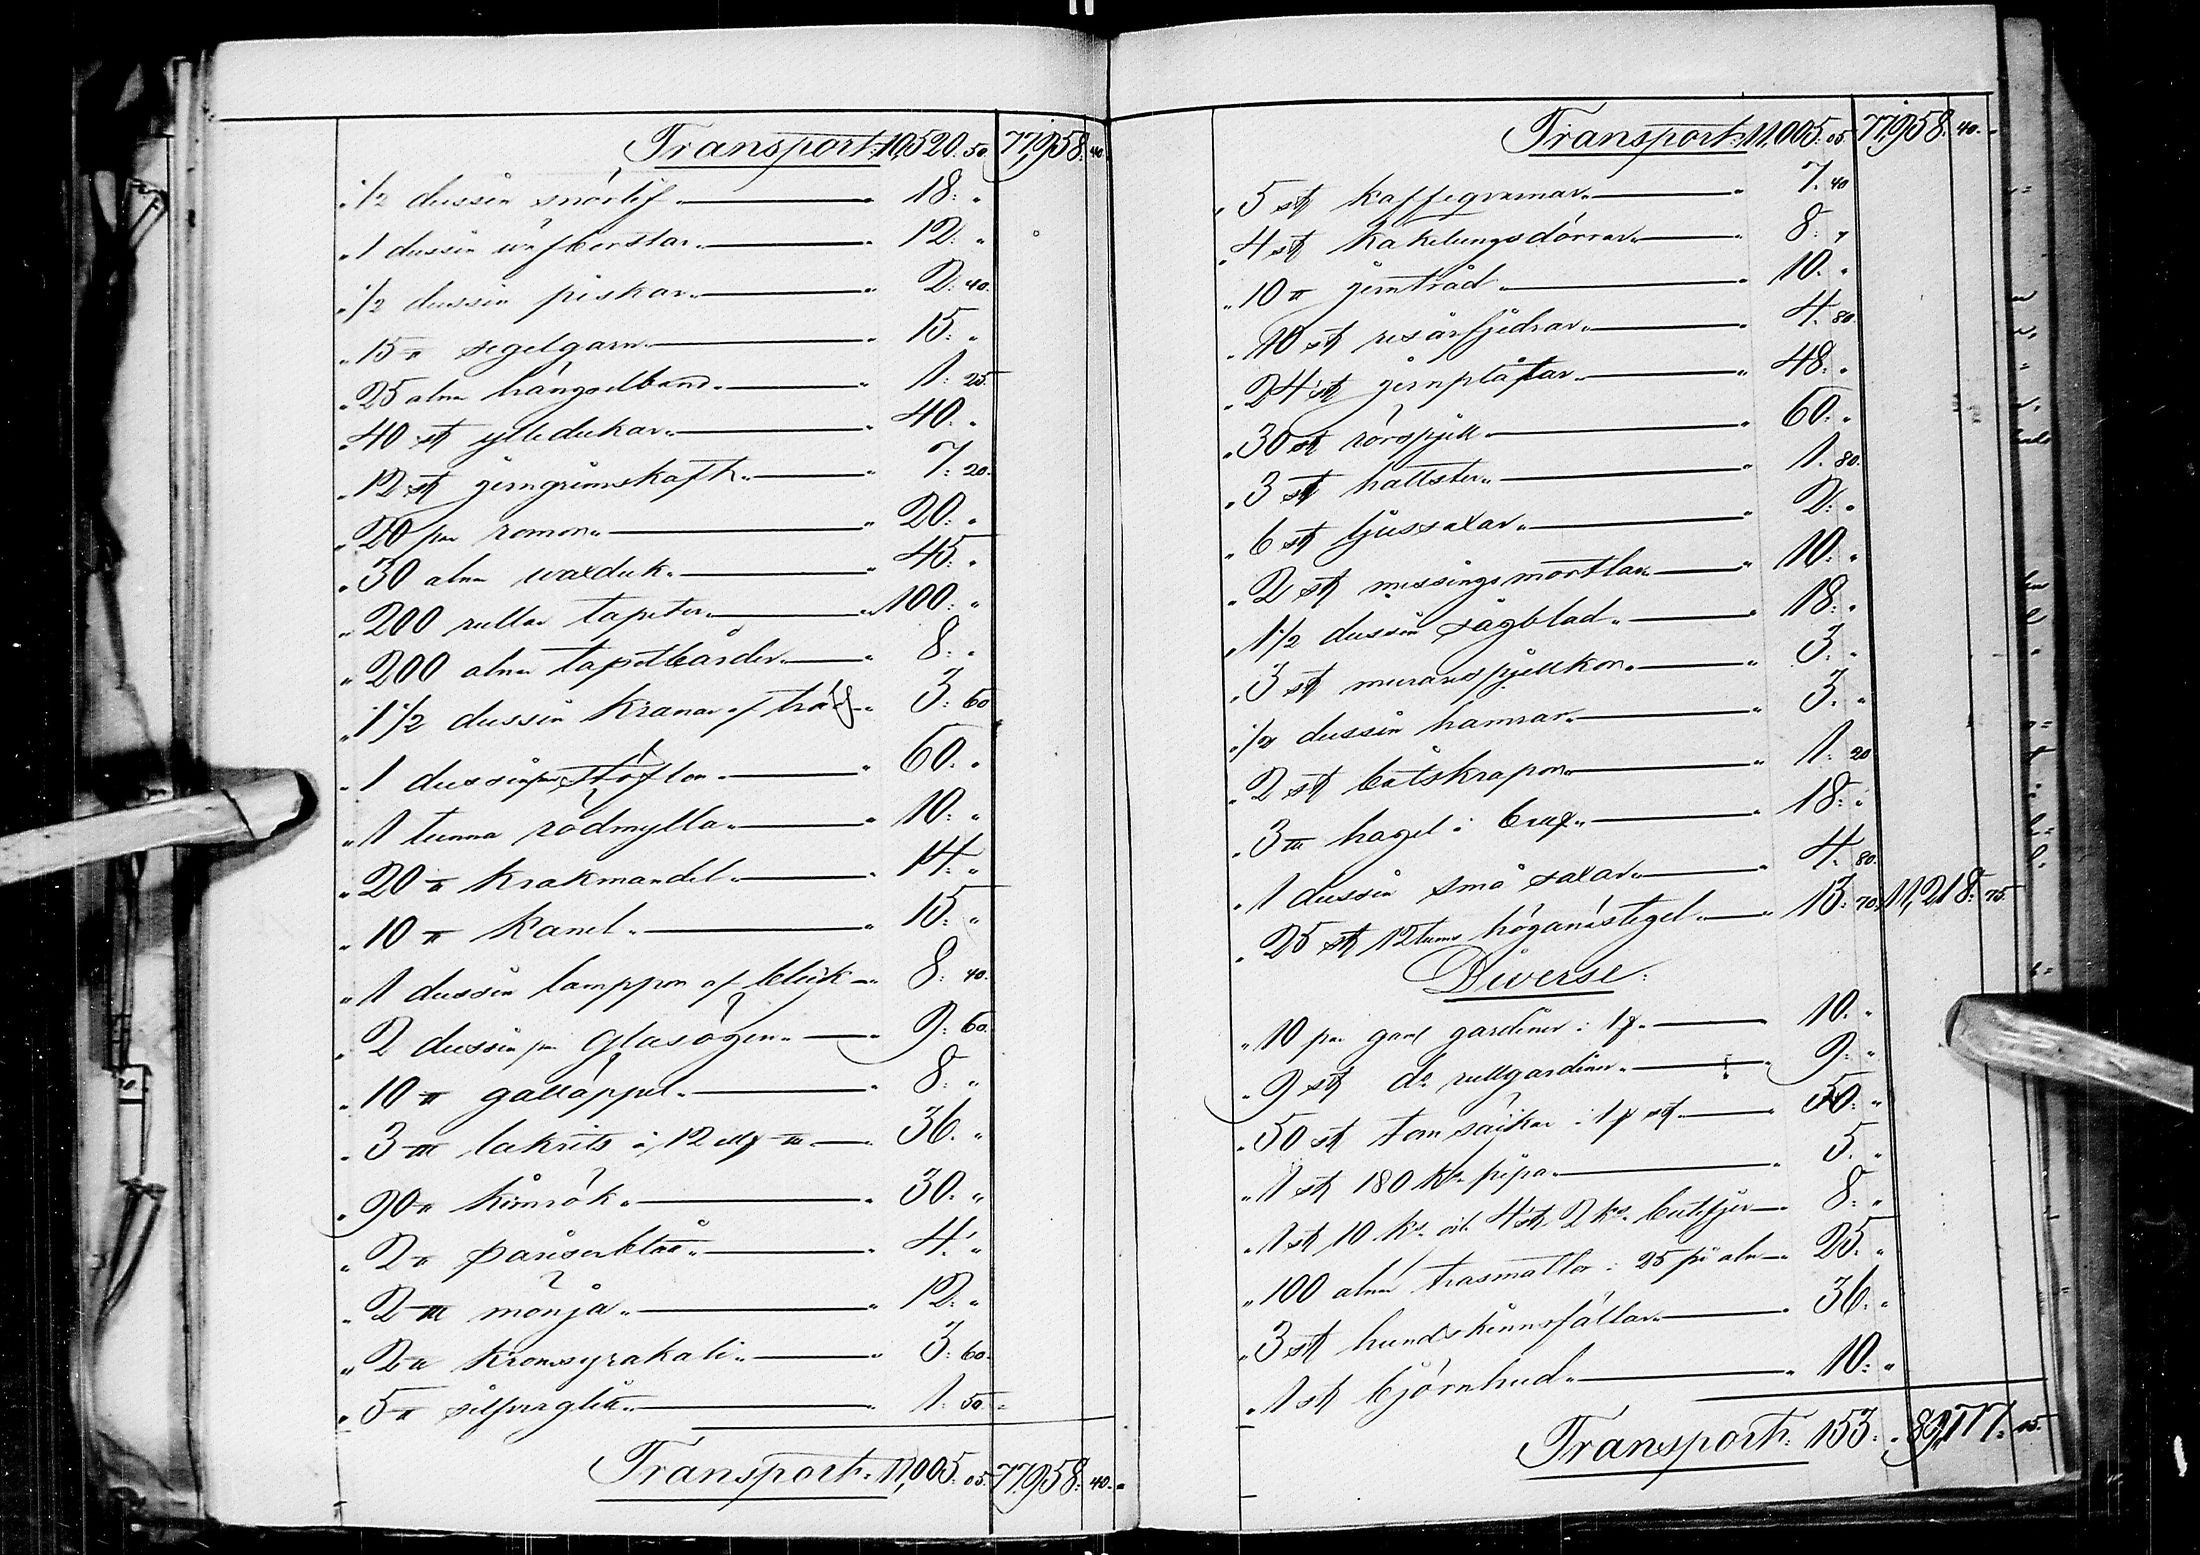 Transport: 10,520. 50. 77,958: 40.
„ 1/2 dussin snörlif „ 18: „
„ 1 dussin „ 12: „
„ 1/2 dussin piskar „ 2: 40.
„ 15 ℔ segelgarn „ 15: „
„ 25 alnar hängselband „ 1: 25.
„ 40 st ylledukar „ 40. „
„ 12 st jerngrimskaft „ 7: 20.
„ 20 par „ 20: „
„ 30 alnar waxduk „ 45: „
„ 200 rullar tapeter „ 100: „
„ 200 alnar tapetbårder „ 8: „
„ 1 1/2 dussin kranar af trä „ 3: 60
„ 1 dussin par stöflor „ 60. „
„ 1 tunna rödmylla „ 10: „
„ 20 ℔ krakmandel „ 14: „
„ 10 ℔ kanel „ 15: „
„ 1 dussin lamppor af bleck „ 8: 40.
„ 2 dussin par glasögon „ 9: 60.
„ 10 ℔ galläppel „ 8: „
„ 3 lakrits à 12 „ 36. „
„ 90 ℔ kimrök „ 30. „
„ 2 ℔ pariserblåa „ 4: „
„ 2 mönja „ 12: „
„ 2 ℔ kromsyrakali „ 3: 60.
„ 5 ℔ silfverglitt „ 1: 50.
Transport: 11,005: 05. 77,958: 40.
Transport: 11,005: 05. 77,958: 40.
„ 5 st kaffegrumar „ 7. 40
„ 4 st kakelungsdörrar „ 8: „
„ 10 ℔ jerntråd „ 10. „
„ 10 st resårfjedrar „ 4. 80.
„ 24 st jernplåtar „ 48: „
„ 30 st rörspjell „ 60: „
„ 3 st „ 1. 80.
„ 6 st ljussaxar „ 2: „
„ 2 st messingsmortlar „ 10: „
„ 1 1/2 dussin sågblad „ 18: „
„ 3 st „ 3: „
„ 1/2 dussin hamrar „ 3: „
„ 2 st båtskrapor „ 1: 20
„ 3 hagel i „ 18: „
„ 1 dussin små saxar „ 4: 80.
„ 25 st 12 tums höganästegel „ 13: 70. 11,218: 75.
Diverse:
„ 10 par gaml gardiner „ 10. „
„ 9 st do rullgardiner „ 9: „
„ 50 st tom säckar „ 50: „
„ 1 st 180 kr pipa „ 5. „
„ 1 st 10 kr och 4 st 2 kr „ 8: „
„ 100 alnar trasmattor à 25 pr aln „ 25: „
„ 3 st hundskinnsfällar „ 36: „
„ 1 st björnhud „ 10: „
Transport: 153: „ 89,177: 15.